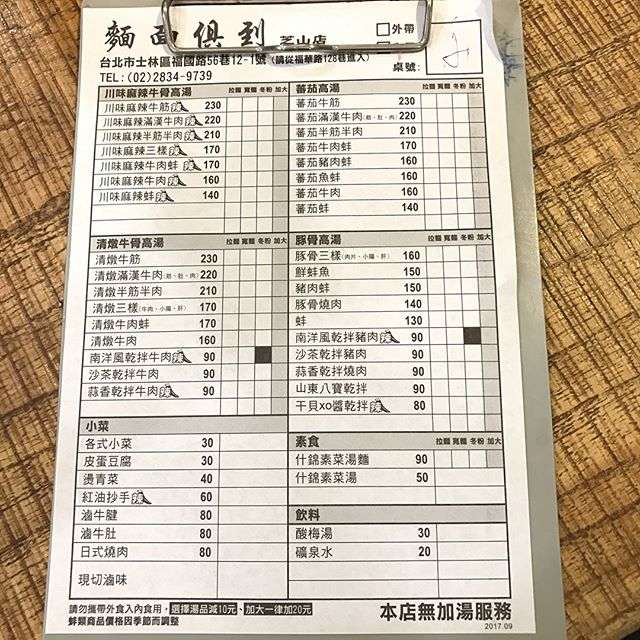 麵面俱到 芝山店
□外帶
台北市士林區福國路56巷12-1號(請從福華路128巷進入)
TEL:(02)2834-9739
桌號:
川味麻辣牛骨高湯 拉麵 寬麵 冬粉 加大
川味麻辣牛筋 230
川味麻辣滿漢牛肉 220
川味麻辣半筋半肉 210
川味麻辣三樣 170
川味麻辣牛肉蚌 170
川味麻辣牛肉 160
川味麻辣蚌 140
蕃茄高湯 拉麵 寬麵 冬粉 加大
蕃茄牛筋 230
蕃茄滿漢牛肉(筋、肚、肉) 220
蕃茄半筋半肉 210
蕃茄牛肉蚌 170
蕃茄豬肉蚌 160
蕃茄魚蚌 160
蕃茄牛肉 160
蕃茄蚌 140
清燉牛骨高湯 拉麵 寬麵 冬粉 加大
清燉牛筋 230
清燉滿漢牛肉(筋、肚、肉) 220
清燉半筋半肉 210
清燉三樣(牛肉、小腸、肝) 170
清燉牛肉蚌 170
清燉牛肉 160
南洋風乾拌牛肉 90
沙茶乾拌牛肉 90
蒜香乾拌牛肉 90
豚骨高湯 拉麵 寬麵 冬粉 加大
豚骨三樣(肉片、小腸、肝) 160
鮮蚌魚 150
豬肉蚌 150
豚骨燒肉 140
蚌 130
南洋風乾拌豬肉 90
沙茶乾拌豬肉 90
蒜香乾拌燒肉 90
山東八寶乾拌 90
干貝xo醬乾拌 80
小菜
各式小菜 30
皮蛋豆腐 30
燙青菜 40
紅油抄手 60
滷牛腱 80
滷牛肚 80
日式燒肉 80
現切滷味
素食 拉麵 寬麵 冬粉 加大
什錦素菜湯麵 90
什錦素菜湯 50
飲料
酸梅湯 30
礦泉水 20
請勿攜帶外食入內食用, 選擇湯品減10元、加大一律加20元
蚌類商品價格因季節而調整
本店無加湯服務
2017.09